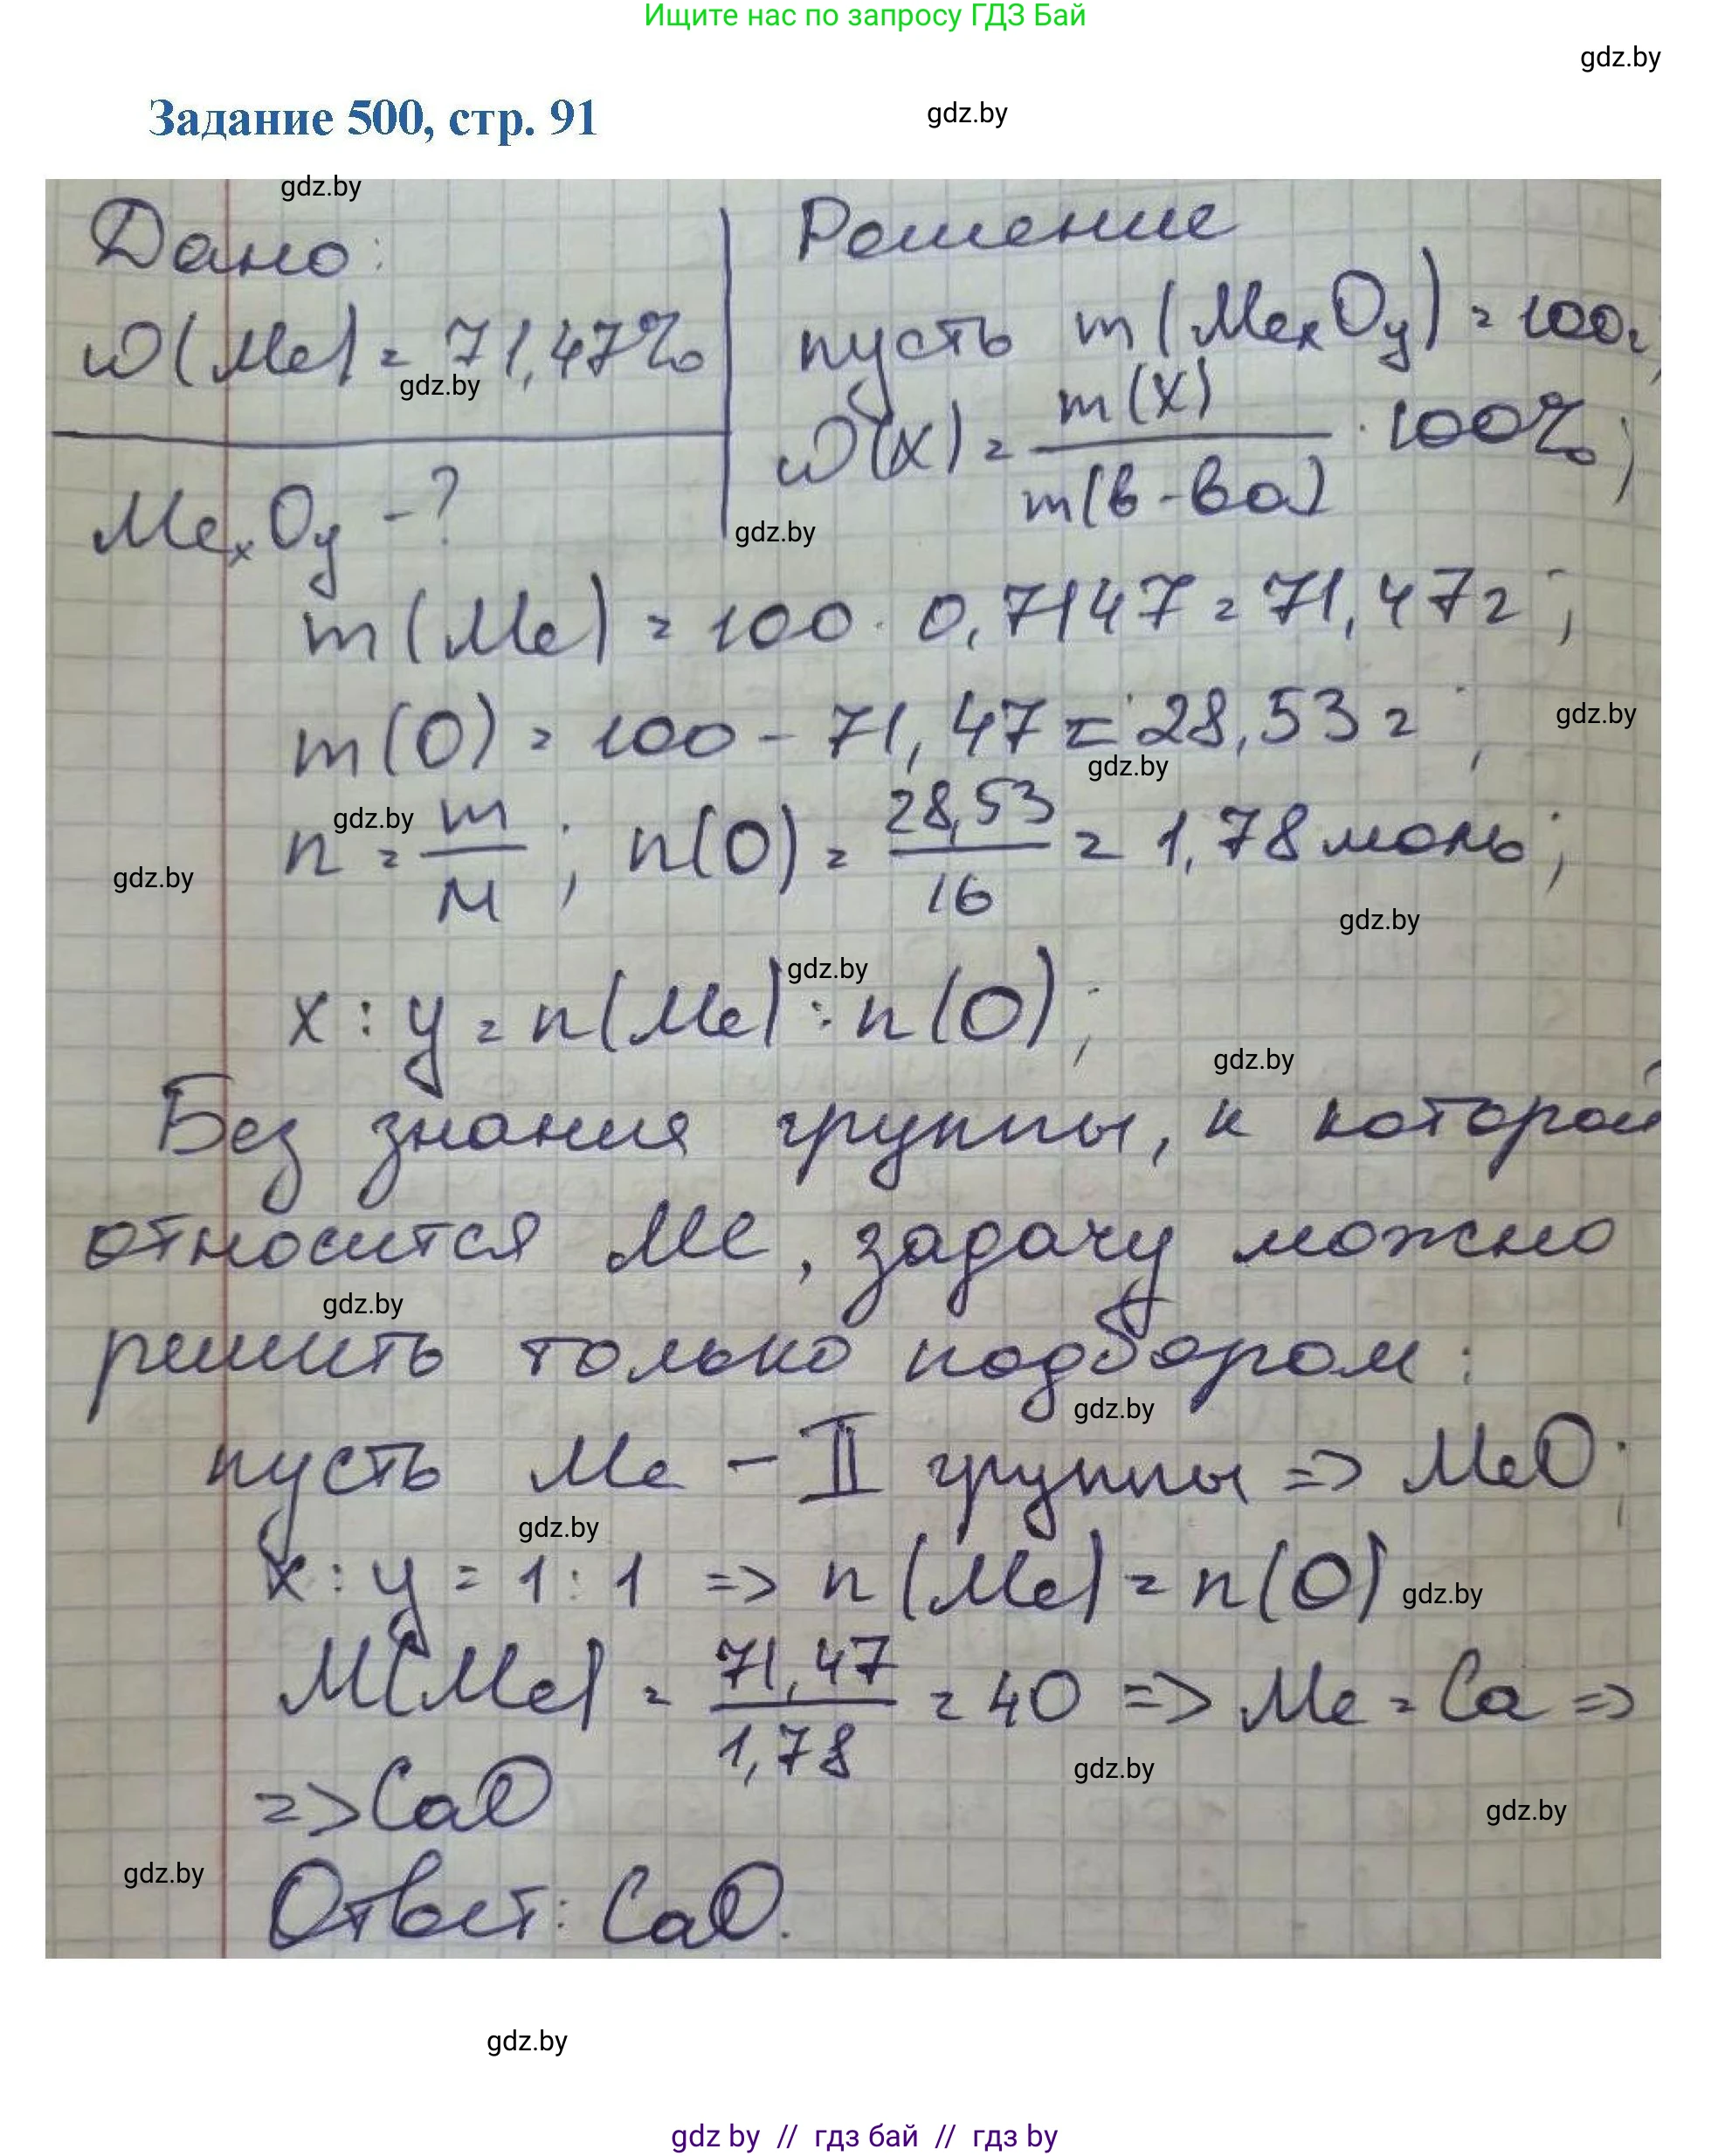 Ищите нас по запросу ГДЗ Бай
gdz.by
Задание 500, стр. 91
gdz.by
gdz.by
Дано:
Решение
ω(Me) = 71,47%
пусть m(MeₓOᵧ) = 100г;
gdz.by
ω(x) = m(x) / m(в-ва) · 100%;
MeₓOᵧ - ?
gdz.by
m(Me) = 100 · 0,7147 = 71,47г;
m(O) = 100 - 71,47 = 28,53г;
gdz.by
gdz.by
gdz.by
n = m/M; n(O) = 28,53/16 = 1,78 моль;
gdz.by
gdz.by
gdz.by
x : y = n(Me) : n(O);
gdz.by
Без знания группы, к которой
относится Me, задачу можно
gdz.by
решить только подбором:
gdz.by
пусть Me - II группы => MeO;
gdz.by
x : y = 1 : 1 => n(Me) = n(O)
gdz.by
M(Me) = 71,47/1,78 = 40 => Me = Ca =>
gdz.by
=> CaO
gdz.by
gdz.by
Ответ: CaO.
gdz.by
gdz by // гдз бай // гдз by